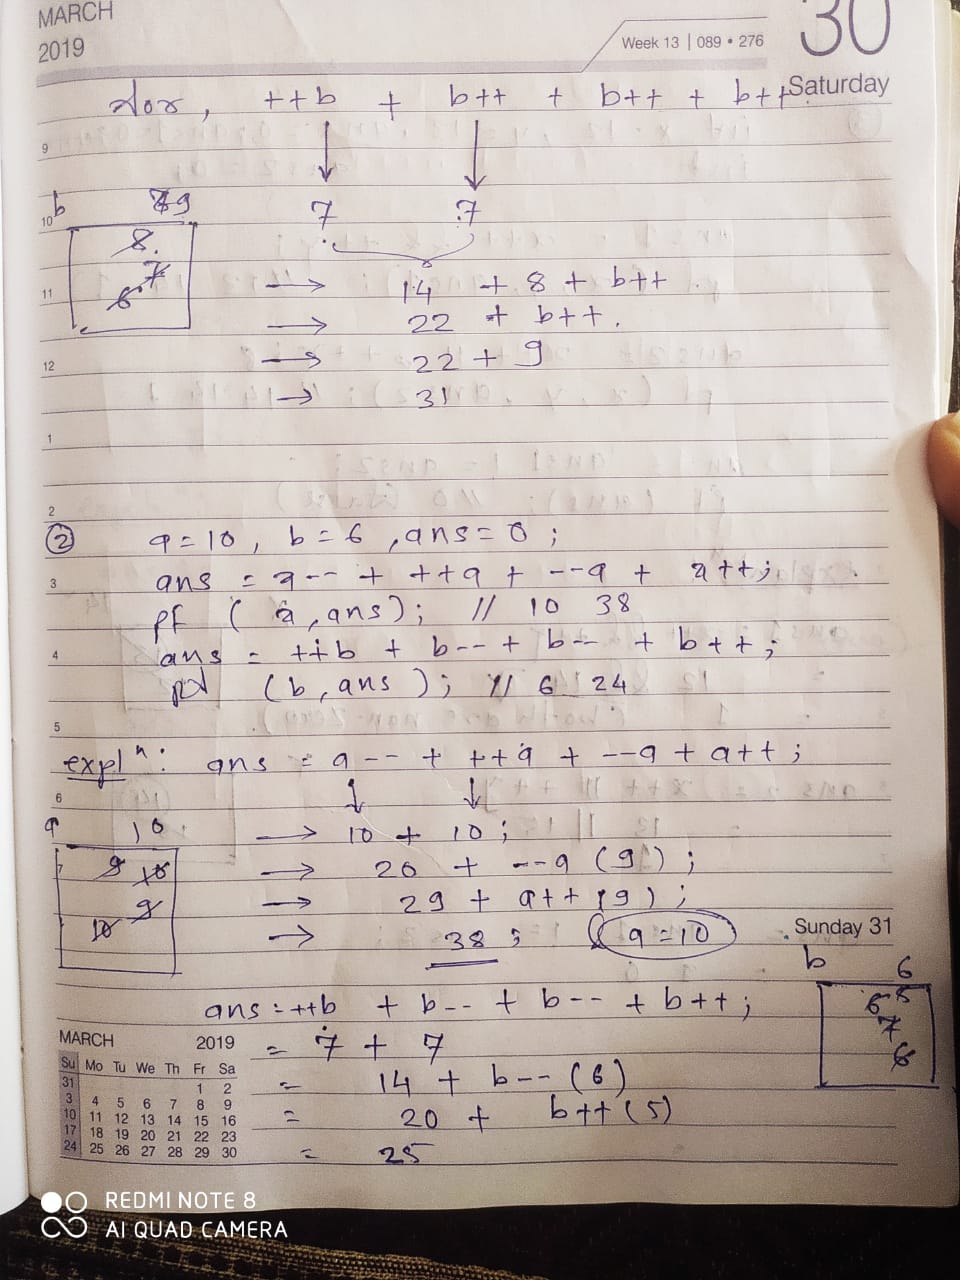 MARCH
2019
30
Week 13 | 089 • 276
Saturday
++b + b++ + b++ + b++
9
10
b
9
7 7
8
7
6
11
→ 14 + 8 + b++
→ 22 + b++.
12
→ 22 + 9
→ 31
1
2
② a = 10, b = 6, ans = 0;
3
ans = a-- + ++a + --a + a++;
pf (a, ans); // 10 38
4
ans = ++b + b-- + b-- + b++;
(b, ans); // 6 24
5
explⁿ: ans = a-- + ++a + --a + a++;
6
a 10
→ 10 + 10;
9 10
→ 20 + --a (9);
9
→ 29 + a++ (9);
10
→ 38; a = 10
Sunday 31
b 6
ans = ++b + b-- + b-- + b++;
6 5
7
6
= 7 + 7
= 14 + b-- (6)
= 20 + b++ (5)
= 25
MARCH 2019
Su Mo Tu We Th Fr Sa
31 1 2
3 4 5 6 7 8 9
10 11 12 13 14 15 16
17 18 19 20 21 22 23
24 25 26 27 28 29 30
REDMI NOTE 8
AI QUAD CAMERA